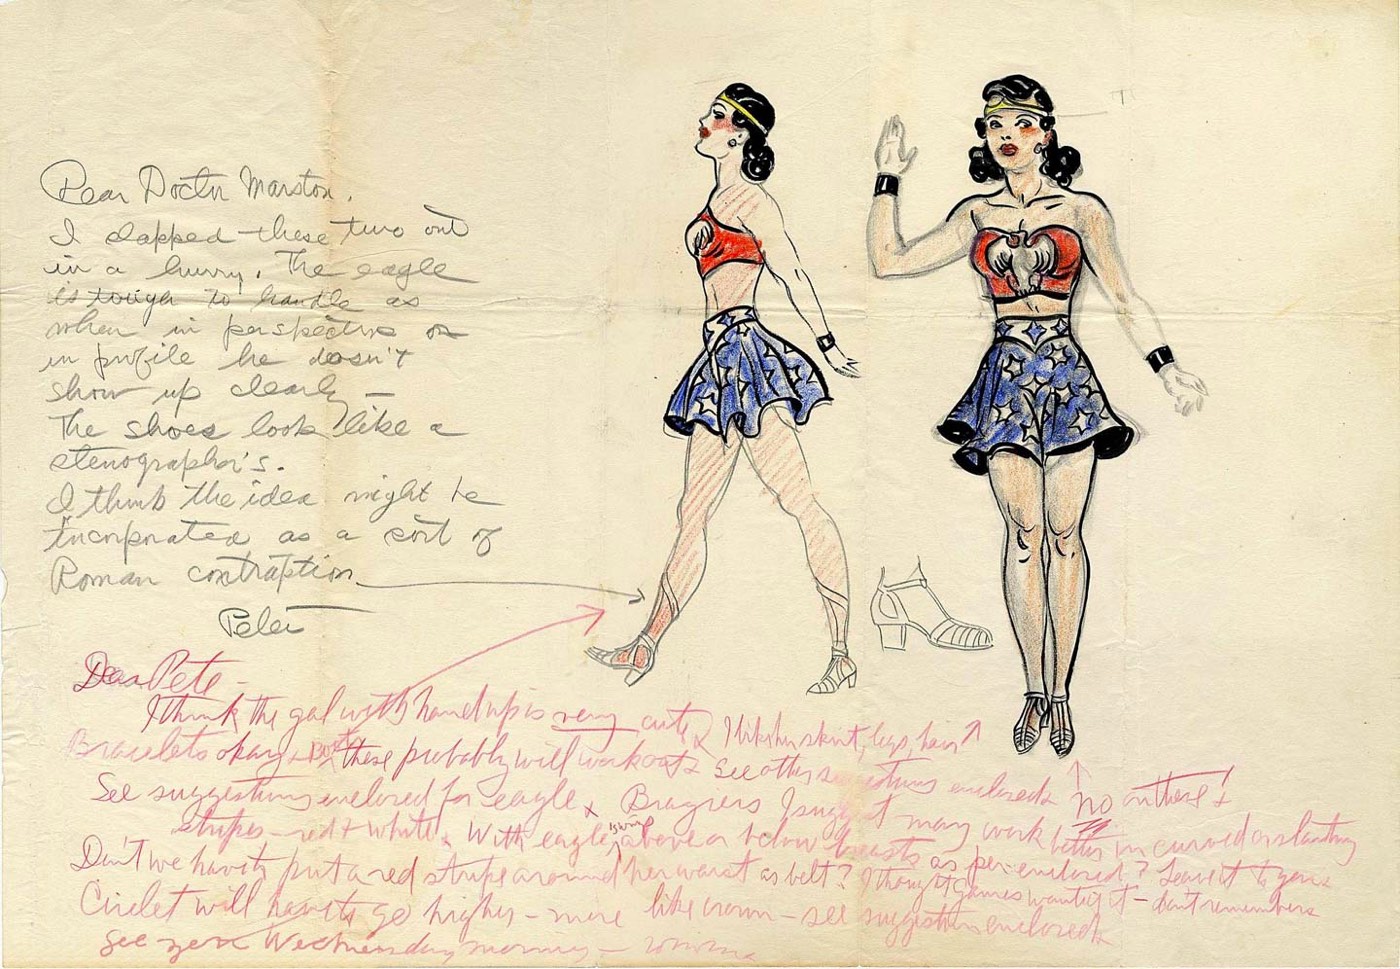 Dear Doctor Marston,
I slapped these two out
in a hurry. The eagle
is tough to handle as
when in perspective or
in profile he doesn't
show up clearly —
The shoes look like a
stenographer's.
I think the idea might be
incorporated as a sort of
Roman contraption
Peter
Dear Pete –
I think the gal with hand up is very cute. I like her skirt, legs, hair.
Bracelets okay + boots. These probably will work out. See other suggestions enclosed. No on these!
See suggestions enclosed for eagle + Bragrers I suggest may work better in curved or slanting
stripes – red + white. With eagle's wing above or below breasts as per enclosed? Leave it to you.
Don't we have to put a red stripe around her waist as belt? I thought Gaines wanted it – don't remember.
Circlet will have to go higher – more like crown – see suggestion enclosed.
See you Wednesday morning –